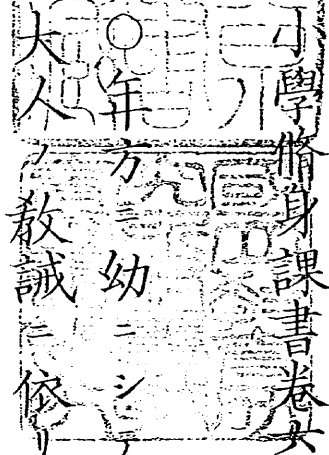 小學脩身課書卷
〇年方ニ幼ニシテ
大人ノ敎誡ニ依リ